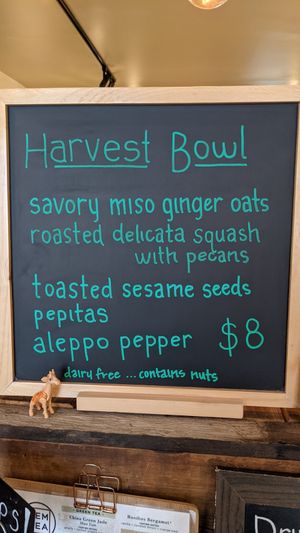 Harvest Bowl
savory miso ginger oats
roasted delicata squash
with pecans
toasted sesame seeds
pepitas
aleppo pepper $8
dairy free ... contains nuts
GREEN TEA
China Green Jade
Rooibos Bergamot
EM
EA
RS